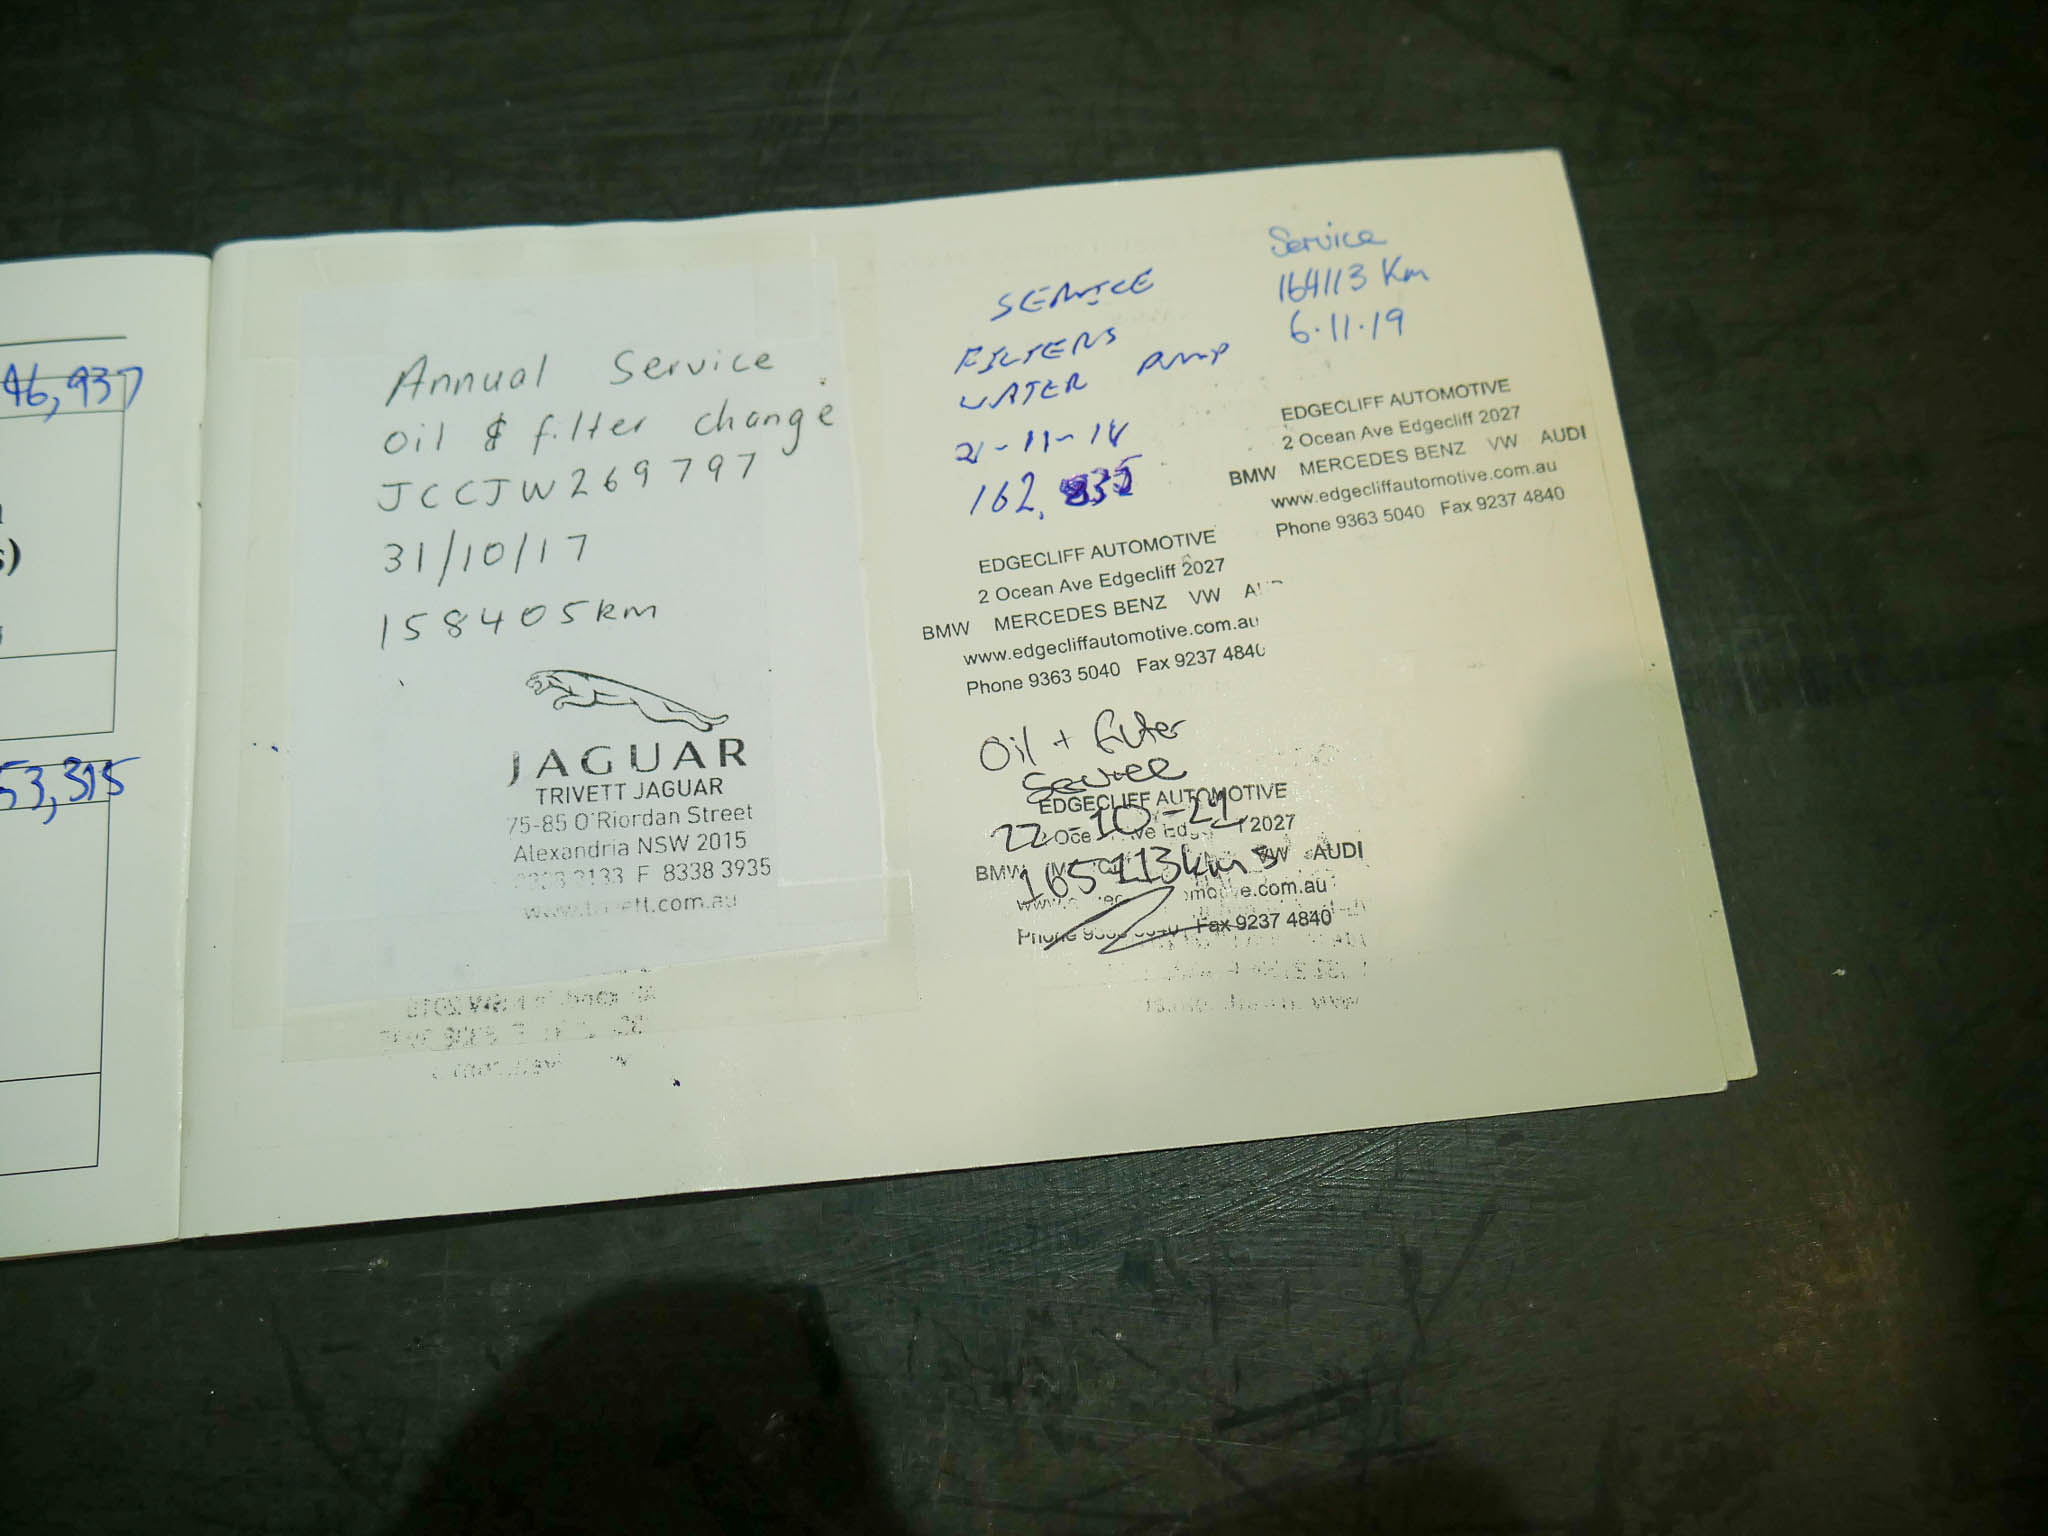 46,937
53,315
Annual Service
Oil & filter change
JCCJW269797
31/10/17
158405km
JAGUAR
TRIVETT JAGUAR
75-85 O'Riordan Street
Alexandria NSW 2015
F 8338 3935
www.trivett.com.au
SERVICE
FILTERS
WATER PUMP
162,
EDGECLIFF AUTOMOTIVE
2 Ocean Ave Edgecliff 2027
BMW MERCEDES BENZ VW
www.edgecliffautomotive.com.au
Phone 9363 5040 Fax 9237 4840
Service
164113 Km
6.11.19
EDGECLIFF AUTOMOTIVE
2 Ocean Ave Edgecliff 2027
BMW MERCEDES BENZ VW AUDI
www.edgecliffautomotive.com.au
Phone 9363 5040 Fax 9237 4840
Oil + Filter
Service
EDGECLIFF AUTOMOTIVE
22-10-21
2027
165113kms
BMW VW AUDI
Phone Fax 9237 4840